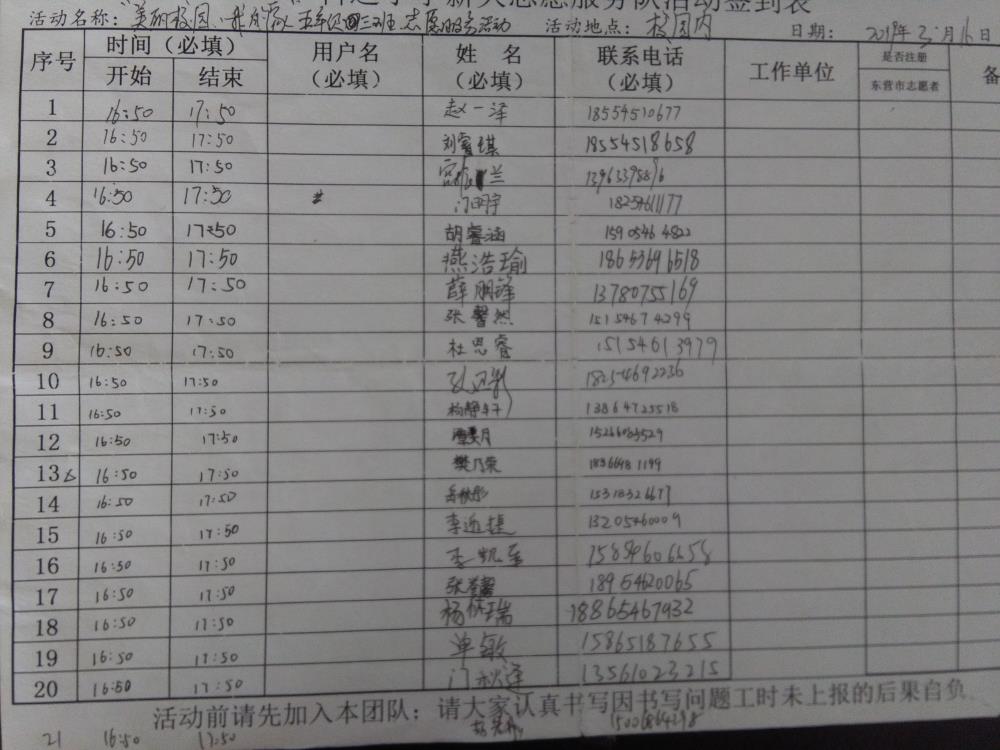 志愿服务队活动签到表
活动名称：美丽校园 五年级四三班 志愿服务活动 活动地点：校园内 日期：2019年3月16日
序号 时间（必填） 用户名（必填） 姓名（必填） 联系电话（必填） 工作单位 是否注册东营市志愿者 备
开始 结束
1 16:50 17:50 赵一泽 18554510677
2 16:50 17:50 刘睿琪 18554518658
3 16:50 17:50 兰 13963395896
4 16:50 17:50 门明宇 18254611177
5 16:50 17:50 胡睿涵 15905464822
6 16:50 17:50 燕浩瑜 18653696518
7 16:50 17:50 薛鹏锋 13780755169
8 16:50 17:50 张馨然 15154674299
9 16:50 17:50 杜思睿 15154613979
10 16:50 17:50 18254692236
11 16:50 17:50 杨静 13864725518
12 16:50 17:50 月
13 16:50 17:50 樊乃荣
14 16:50 17:50
15 16:50 17:50 李近捷 13205460009
16 16:50 17:50 李凯
17 16:50 17:50 张 18954620065
18 16:50 17:50 杨 瑞 18865467932
19 16:50 17:50 单敏 15865187655
20 16:50 17:50 门 13561023215
活动前请先加入本团队；请大家认真书写因书写问题工时未上报的后果自负
21 16:50 17:50